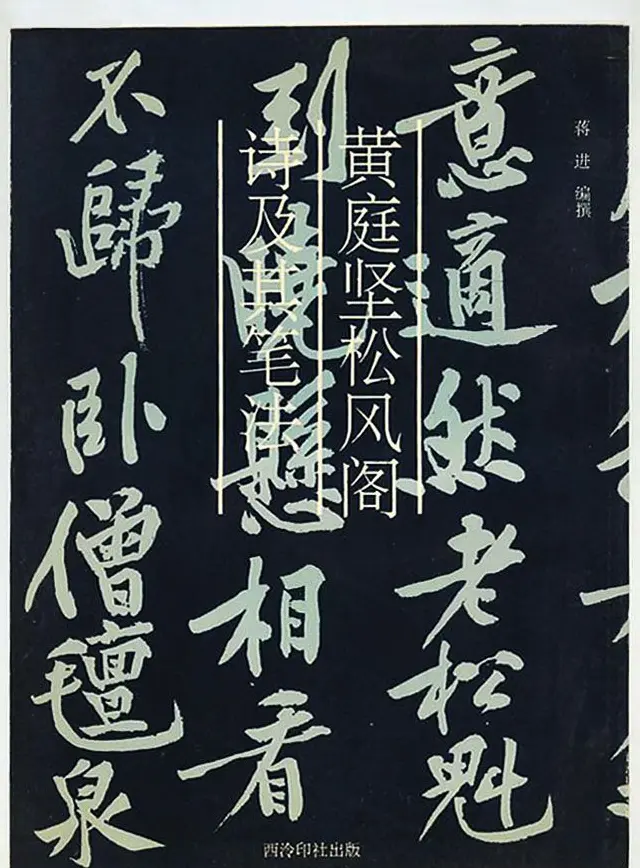 蒋进 编撰
意適然老松魁
到曉懸相看
不歸卧僧氈泉
黄庭坚松风阁
诗及其笔法
西泠印社出版